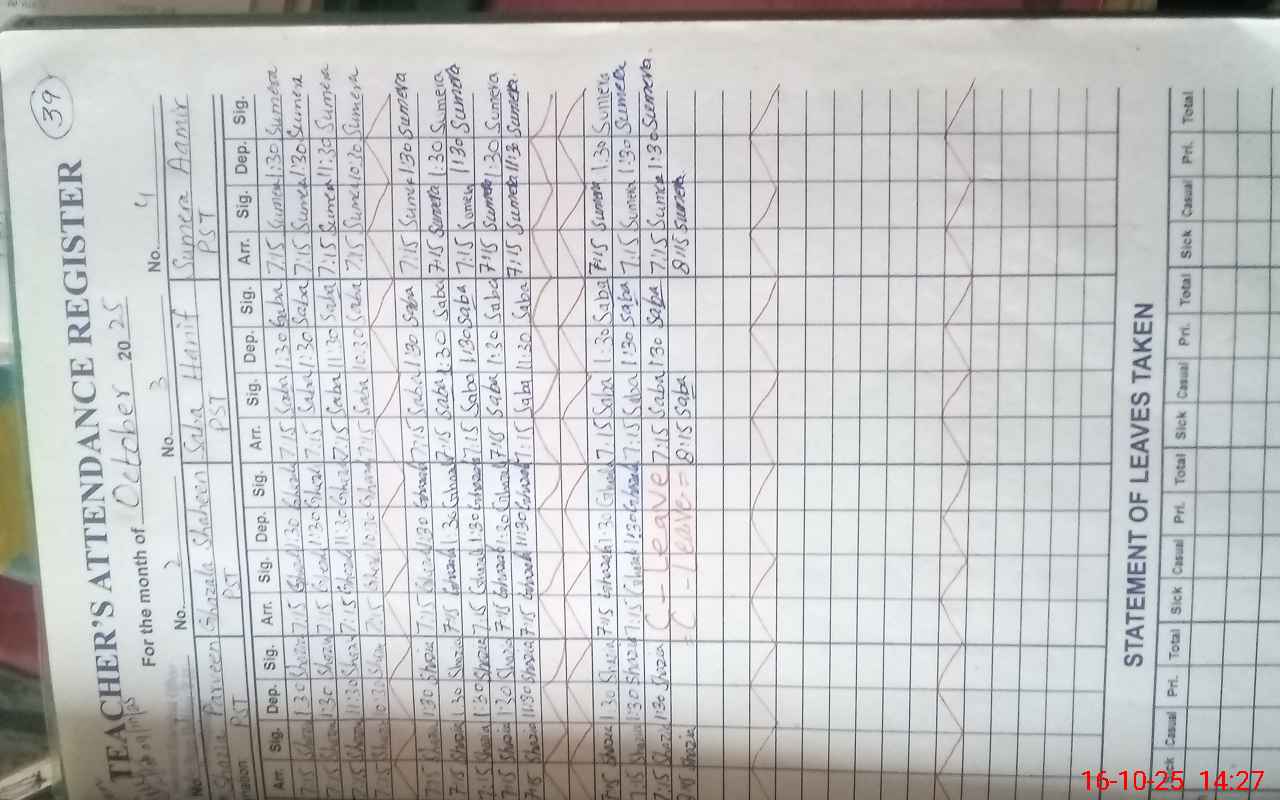 39
TEACHER'S ATTENDANCE REGISTER
For the month of October 2025
No. 2 No. 3 No. 4
Shazia Parveen Ghazala Shaheen Saba Hanif Sumera Aamir
PST PST PST PST
Arr. Sig. Dep. Sig. Arr. Sig. Dep. Sig. Arr. Sig. Dep. Sig. Arr. Sig. Dep. Sig.
7:15 Shazia 1:30 Shazia 7:15 Ghazala 1:30 Ghazala 7:15 Saba 1:30 Saba 7:15 Sumera 1:30 Sumera
7:15 Shazia 1:30 Shazia 7:15 Ghazala 1:30 Ghazala 7:15 Saba 1:30 Saba 7:15 Sumera 1:30 Sumera
7:15 Shazia 11:30 Shazia 7:15 Ghazala 11:30 Ghazala 7:15 Saba 11:30 Saba 7:15 Sumera 11:30 Sumera
7:15 Shazia 10:30 Shazia 7:15 Ghazala 10:30 Ghazala 7:15 Saba 10:30 Saba 7:15 Sumera 10:30 Sumera
7:15 Shazia 1:30 Shazia 7:15 Ghazala 1:30 Ghazala 7:15 Saba 1:30 Saba 7:15 Sumera 1:30 Sumera
7:15 Shazia 1:30 Shazia 7:15 Ghazala 1:30 Ghazala 7:15 Saba 1:30 Saba 7:15 Sumera 1:30 Sumera
7:15 Shazia 1:30 Shazia 7:15 Ghazala 1:30 Ghazala 7:15 Saba 1:30 Saba 7:15 Sumera 1:30 Sumera
7:15 Shazia 1:30 Shazia 7:15 Ghazala 1:30 Ghazala 7:15 Saba 1:30 Saba 7:15 Sumera 1:30 Sumera
7:15 Shazia 11:30 Shazia 7:15 Ghazala 11:30 Ghazala 7:15 Saba 11:30 Saba 7:15 Sumera 11:30 Sumera.
7:15 Shazia 1:30 Shazia 7:15 Ghazala 1:30 Ghazala 7:15 Saba 1:30 Saba 7:15 Sumera 1:30 Sumera
7:15 Shazia 1:30 Shazia 7:15 Ghazala 1:30 Ghazala 7:15 Saba 1:30 Saba 7:15 Sumera 1:30 Sumera
7:15 Shazia 1:30 Shazia C - Leave 7:15 Saba 1:30 Saba 7:15 Sumera 1:30 Sumera.
8:15 Shazia C - Leave = 8:15 Saba 8:15 Sumera
STATEMENT OF LEAVES TAKEN
Casual Pri. Total Sick Casual Pri. Total Sick Casual Pri. Total Sick Casual Pri. Total
16-10-25 14:27